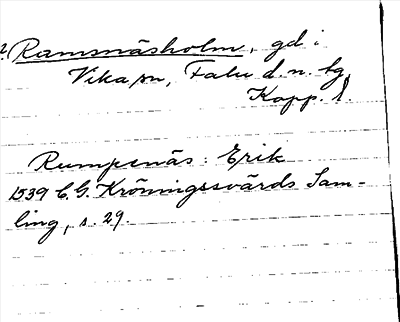 ? Ramsnäsholm, gd i
Vika sn, Falu d. n. bg
Kopp. l.
Rumpenäs: Erik
1539 C. G. Kröningssvärds Sam-
ling, s. 29.